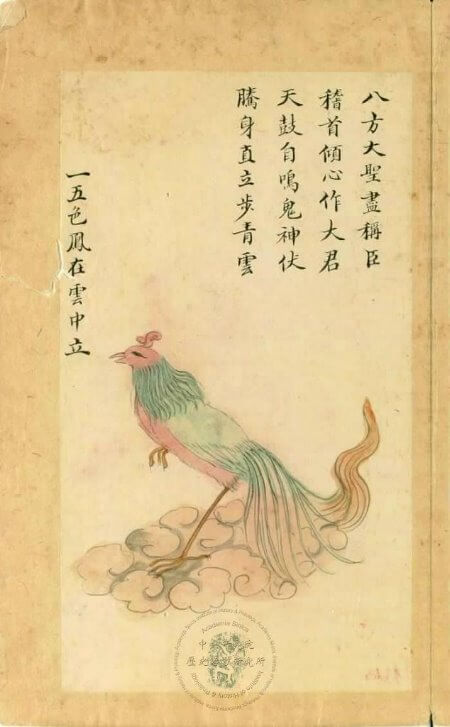 八方大聖盡稱臣
稽首傾心作大君
天鼓自鳴鬼神伏
騰身直立步青雲
一五色鳳在雲中立
Academia Sinica
歷史語言研究所